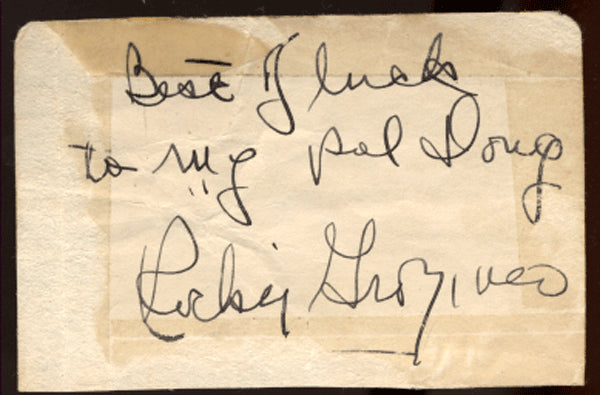 Best of luck
to my pal Doug
Rocky Graziano